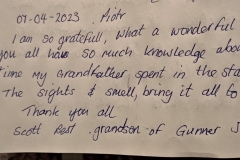 07-04-2023 Piotr
I am so gratefull, What a wonderful
you all have so much knowledge abou
Time my Grandfather spent in the Sta
The sights & smell, bring it all to
Thank you all
Scott Rest grandson of Gunner J